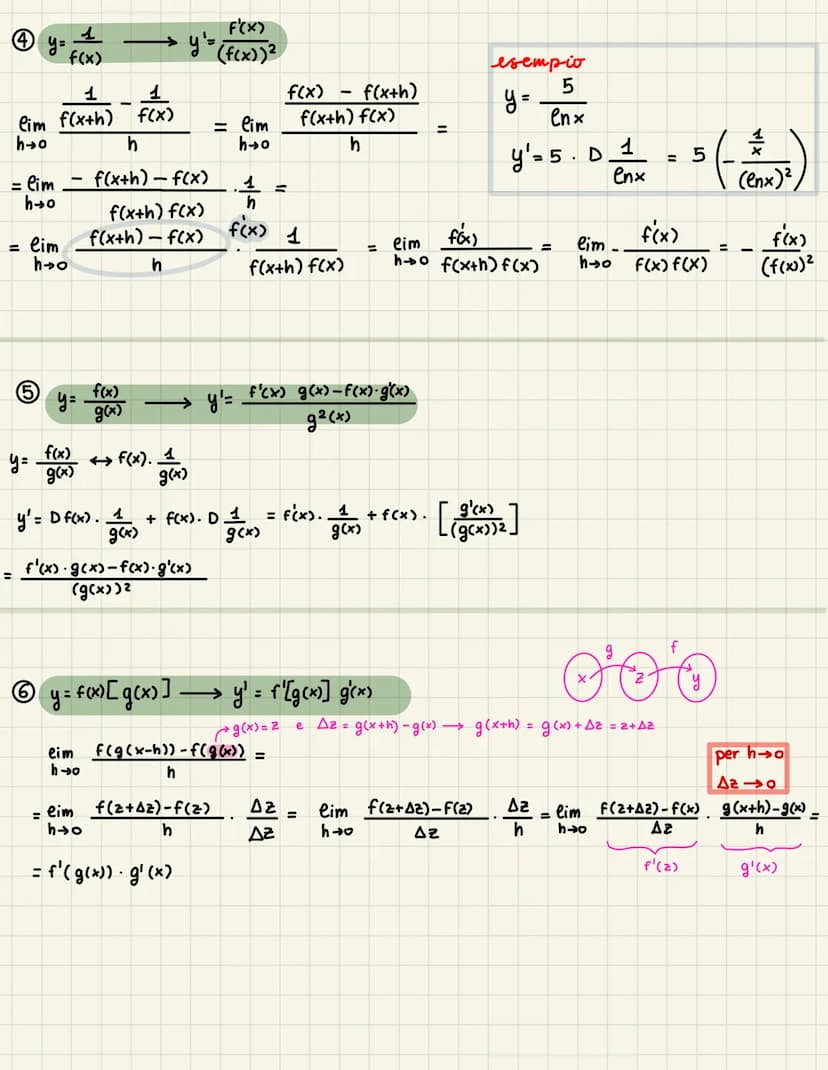 ④ y = 1/f(x) ⟶ y' = f'(x)/(f(x))²
esempio
y = 5/lnx
y' = 5 · D 1/lnx = 5 (- (1/x)/(lnx)²)
lim h→0 (1/f(x+h) - 1/f(x))/h = lim h→0 ((f(x) - f(x+h))/(f(x+h) f(x)))/h =
= lim h→0 (- f(x+h) - f(x))/(f(x+h) f(x)) · 1/h =
= lim h→0 (f(x+h) - f(x))/h f'(x) · 1/(f(x+h) f(x)) = lim h→0 f'(x)/(f(x+h) f(x)) = lim h→0 - f'(x)/(f(x) f(x)) = - f'(x)/(f(x))²
⑤ y = f(x)/g(x) ⟶ y' = (f'(x) g(x) - f(x) · g'(x))/g²(x)
y = f(x)/g(x) ↔ f(x) · 1/g(x)
y' = D f(x) · 1/g(x) + f(x) · D 1/g(x) = f'(x) · 1/g(x) + f(x) · [g'(x)/(g(x))²]
= (f'(x) · g(x) - f(x) · g'(x))/(g(x))²
g f
x z y
⑥ y = f(x)[g(x)] ⟶ y' = f'[g(x)] g'(x)
→ g(x) = z e Δz = g(x+h) - g(x) ⟶ g(x+h) = g(x) + Δz = z + Δz
lim h→0 (f(g(x-h)) - f(g(x)))/h =
per h→0
Δz→0
= lim h→0 (f(z+Δz) - f(z))/h · Δz/Δz = lim h→0 (f(z+Δz) - f(z))/Δz · Δz/h = lim h→0 (f(z+Δz) - f(x))/Δz · (g(x+h) - g(x))/h =
f'(z) g'(x)
= f'(g(x)) · g'(x)